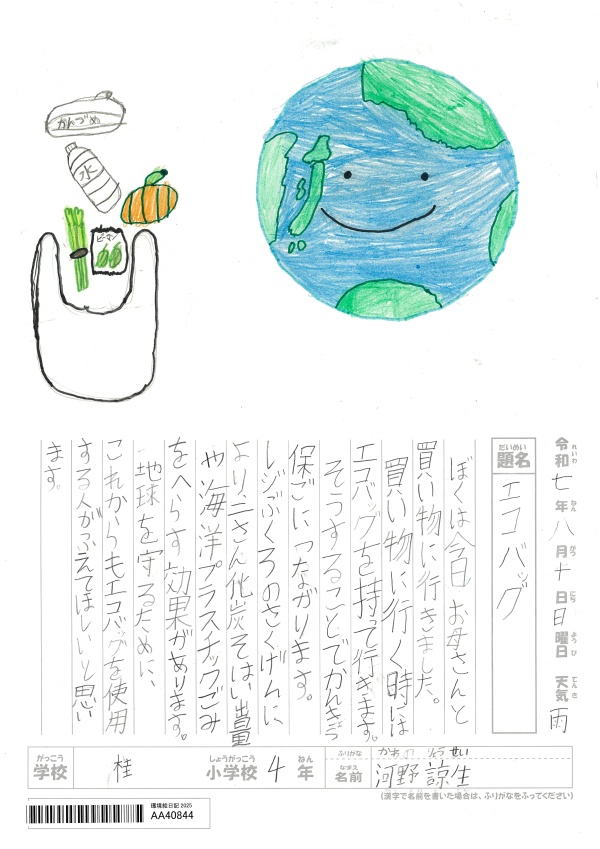 かんづめ
水
ピーマン
令和七年八月十日日曜日 天気雨
れいわ ねん がつ にち ようび てんき
だいめい
題名 エコバッグ
ぼくは今日お母さんと
買い物に行きました。
買い物に行く時は
エコバッグを持って行きます。
そうすることでかんきょう
保ごにつながります。
レジぶくろのさくげんに
より二さん化炭そはい出量
や海洋プラスチックごみ
をへらす効果があります。
地球を守るために、
これからもエコバッグを使用
する人がふえてほしいと思い
ます。
がっこう しょうがっこう ねん
学校 桂 小学校 4年
ふりがな かわの りょうせい
なまえ
名前 河野 諒生
(漢字で名前を書いた場合は、ふりがなをふってください)
環境絵日記 2025
AA40844